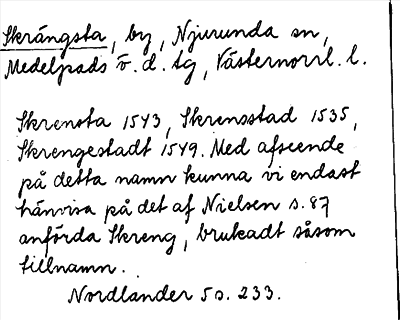 Skrängsta, by, Njurunda sn,
Medelpads ö. d. tg, Västernorrl. l.
Skrensta 1543, Skrensstad 1535,
Skrengestadt 1549. Med afseende
på detta namn kunna vi endast
hänvisa på det af Nielsen s. 87
anförda Skreng, brukadt såsom
tillnamn.
Nordlander 5 s. 233.